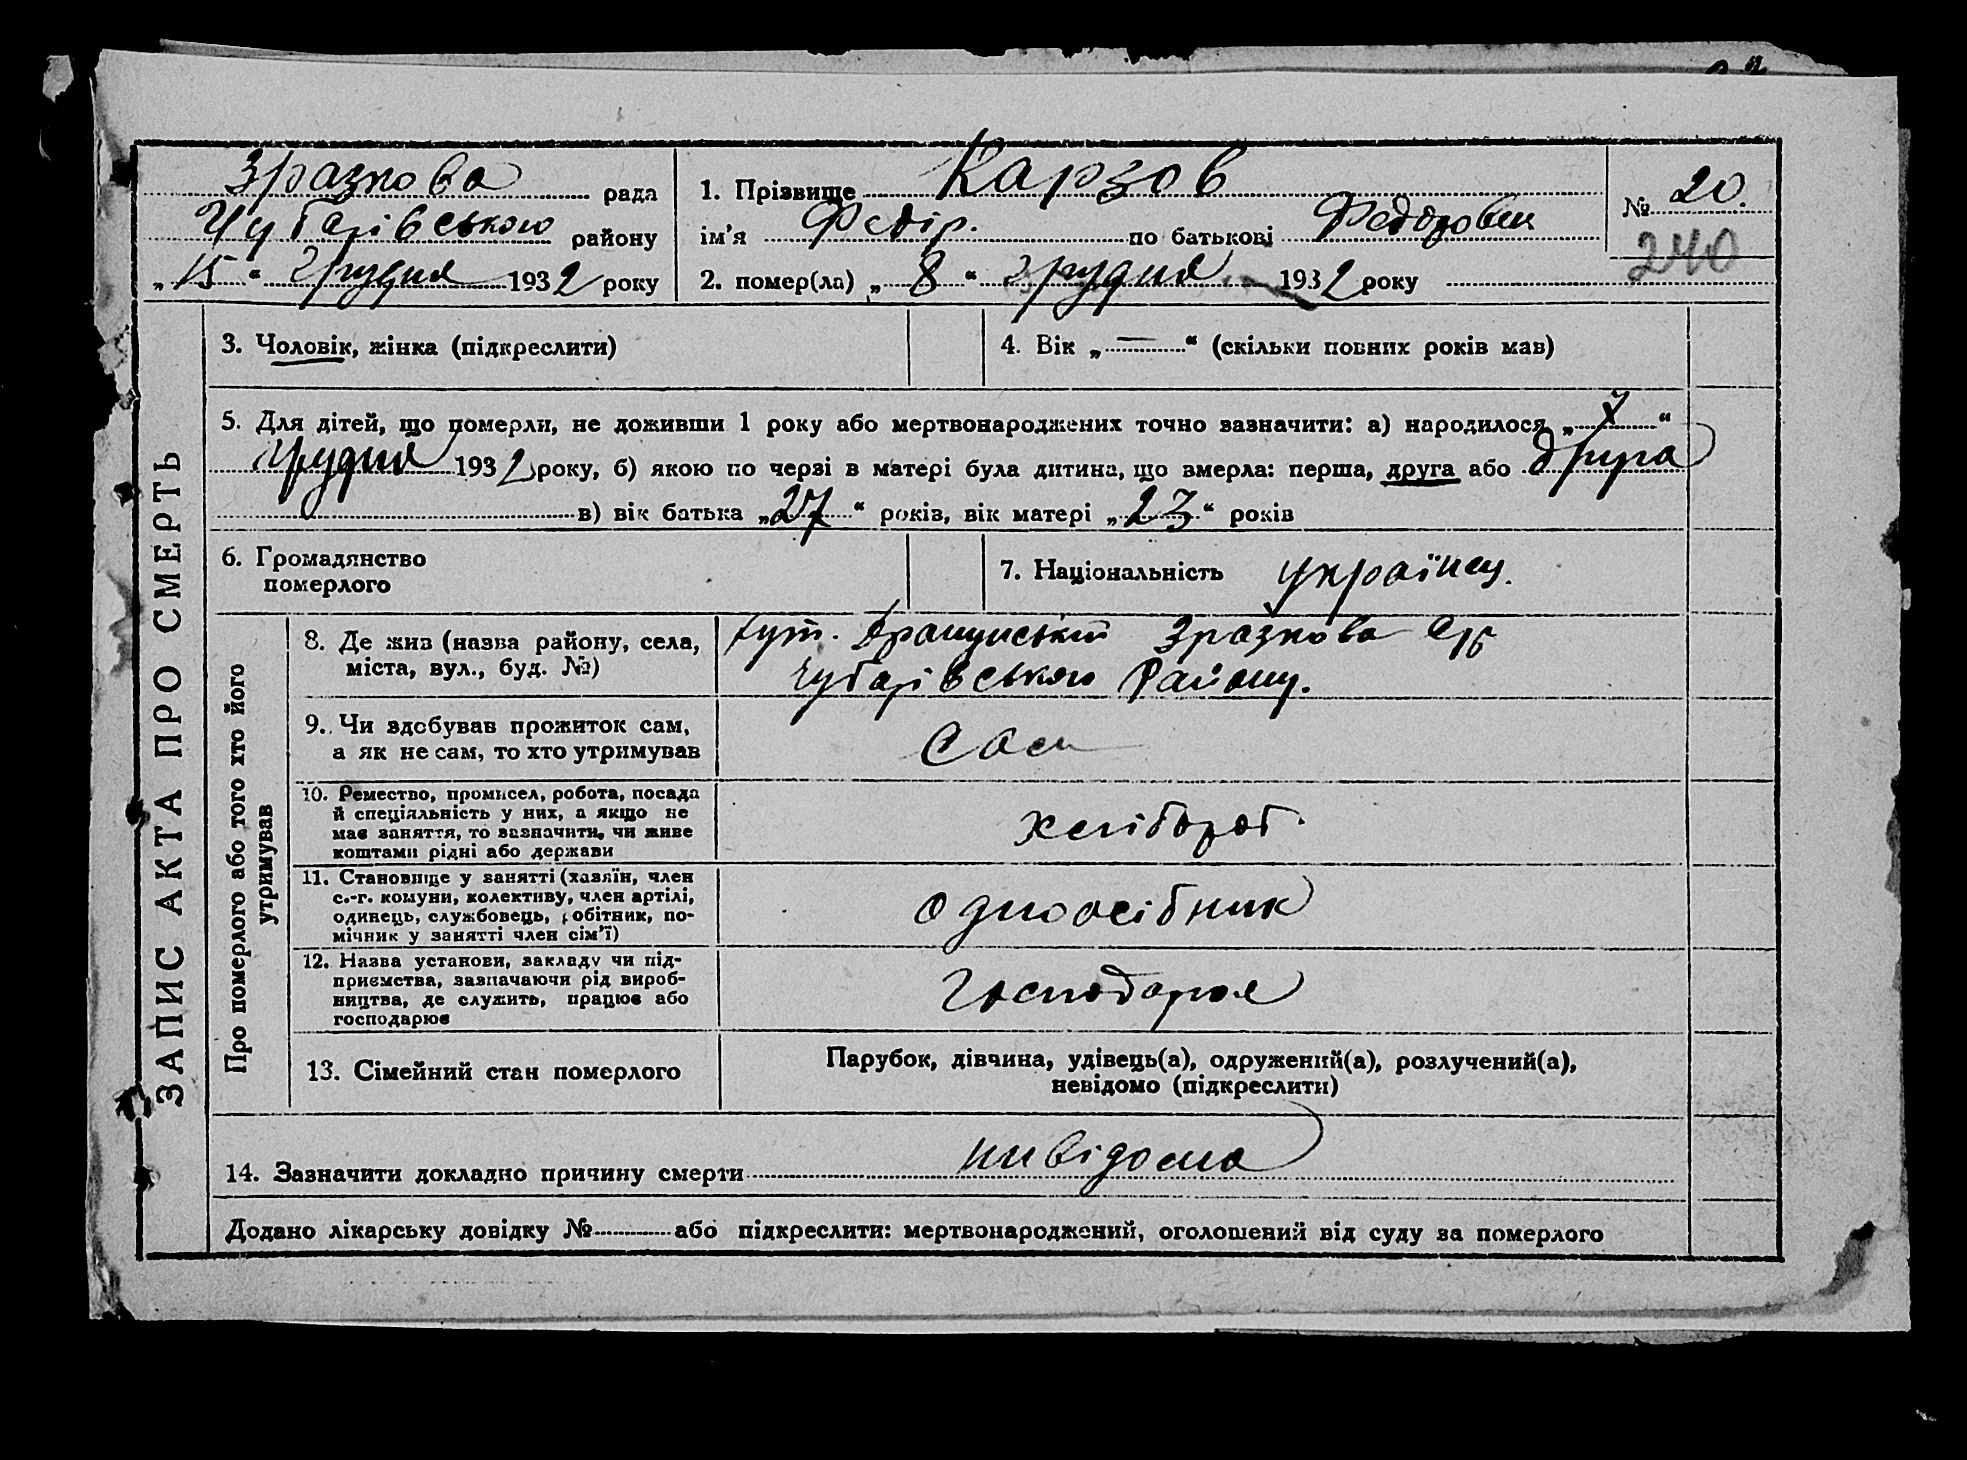 Зразкова рада
Чубарівського району
„15“ Грудня 1932 року
1. Прізвище Карзов
ім'я Федір. по батькові Федорович
2. помер(ла) „8“ грудня 1932 року
№ 20.
240
ЗАПИС АКТА ПРО СМЕРТЬ
3. Чоловік, жінка (підкреслити)
4. Вік „—“ (скільки повних років мав)
5. Для дітей, що померли, не доживши 1 року або мертвонароджених точно зазначити: а) народилося „7“
Грудня 1932 року, б) якою по черзі в матері була дитина, що вмерла: перша, друга або друга
в) вік батька „27“ років, вік матері „23“ років
6. Громадянство
померлого
7. Національність українец.
Про померлого або того хто його
утримував
8. Де жив (назва району, села,
міста, вул., буд. №)
хут. Зразкова С/р
Чубарівського Району.
9. Чи здобував прожиток сам,
а як не сам, то хто утримував
Сам
10. Ремество, промисел, робота, посада
й спеціяльність у них, а якщо не
має заняття, то зазначити, чи живе
коштами рідні або держави
хлібороб.
11. Становище у занятті (хазяїн, член
с.-г. комуни, колективу, член артілі,
одинець, службовець, робітник, по-
мічник у занятті член сім'ї)
одноосібник
12. Назва установи, закладу чи під-
приємства, зазначаючи рід вироб-
ництва, де служить, працює або
господарює
Господарює
13. Сімейний стан померлого
Парубок, дівчина, удівець(а), одружений(а), розлучений(а),
невідомо (підкреслити)
14. Зазначити докладно причину смерти нивідома
Додано лікарську довідку № або підкреслити: мертвонароджений, оголошений від суду за померлого